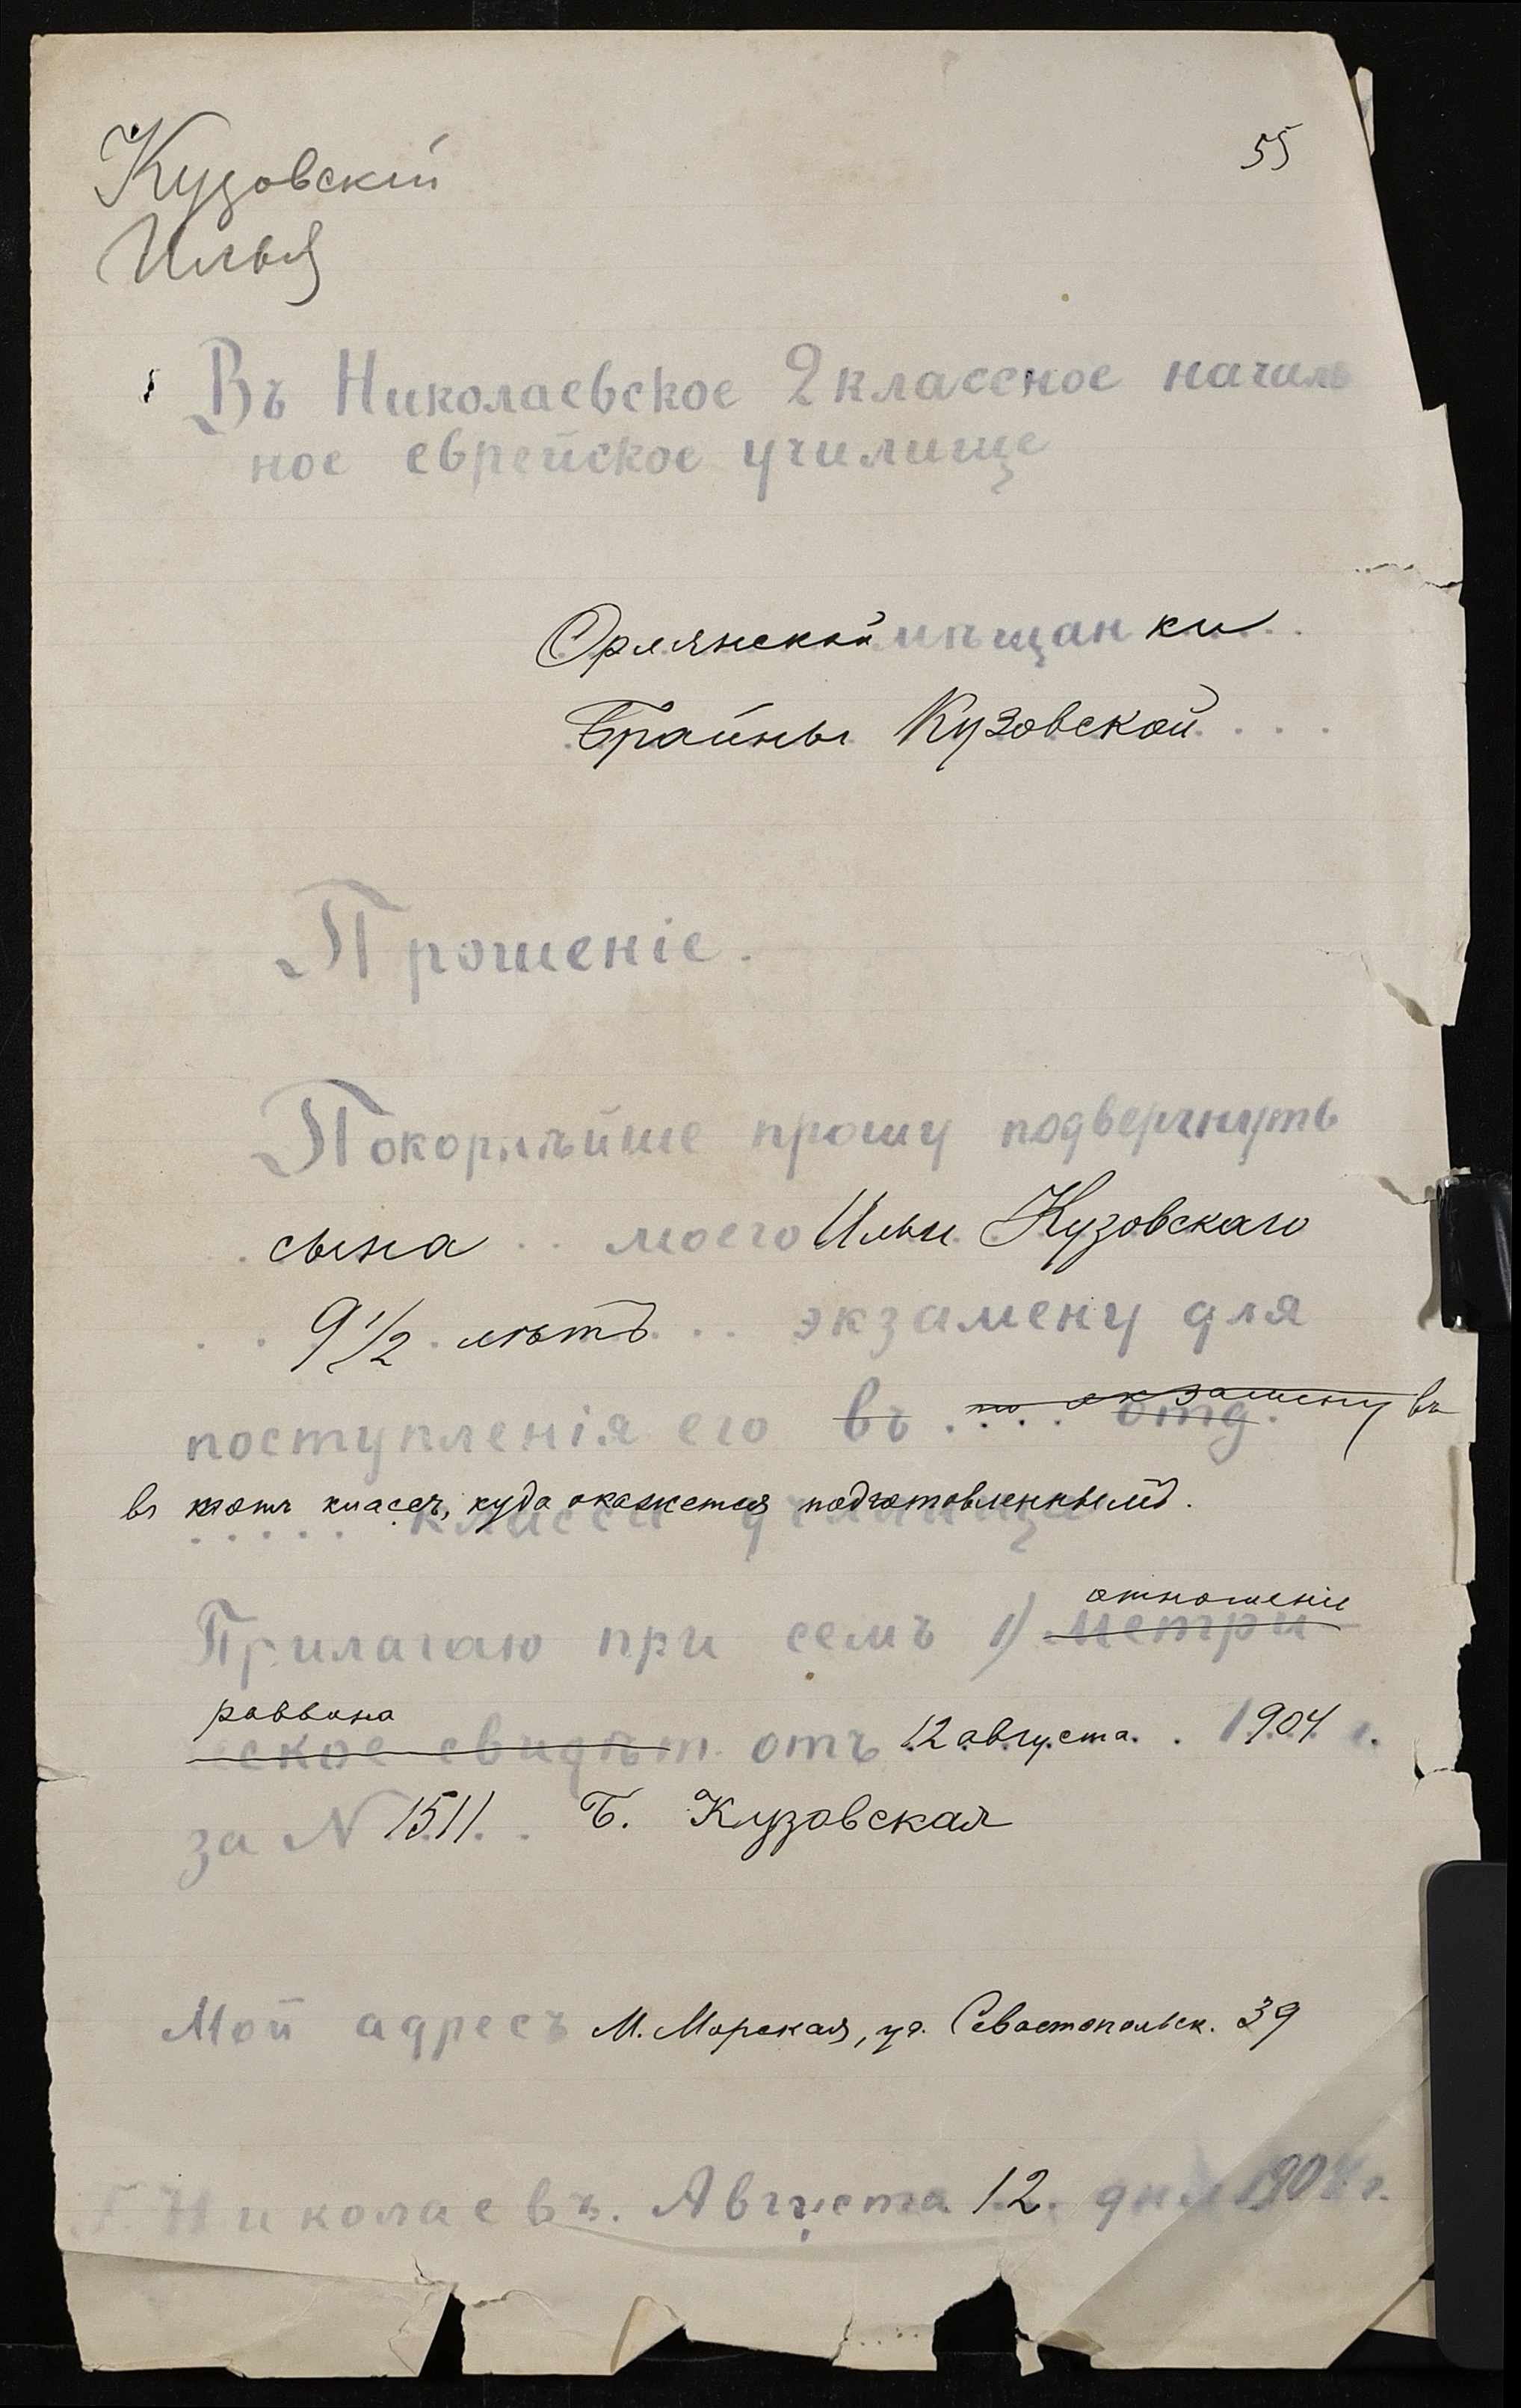 55
Кузовскій
Илья
Въ Николаевское 2 классное началь
ное еврейское училище
Орлянской мѣщанки
Брайны Кузовской
Прошеніе.
Покорнѣйше прошу подвергнуть
сына моего Ильи Кузовскаго
9 1/2 лѣтъ экзамену для
поступленія его въ экзамену отд. въ
въ классъ, куда окажется подготовленнымъ.
класса училища
отношеніе
Прилагаю при семъ 1) метри
раввина
ческое свидѣт. отъ 12 августа 1904 г.
за N 1511. Б. Кузовская
Мой адресъ М. Морская, уг. Севастопольск. 39
Г. Николаевъ. Августа 12 дня 1904 г.